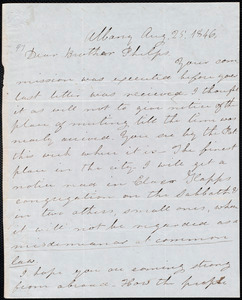 Albany Aug. 25. 1846.
Dear Brother Phelps
Your com
mission was executed before your
last letter was received I thought
it as well not to give notice of the
place of meeting till the time was
nearly arrived You see by the Pat
this week where it is The finest
place in the city I will get a
notice read in
congregation on the Sabbath &
in two others, small ones, where
it will not be regarded as a
misdemeanor at common
law
I hope you are coming strong
from abroad. How the people